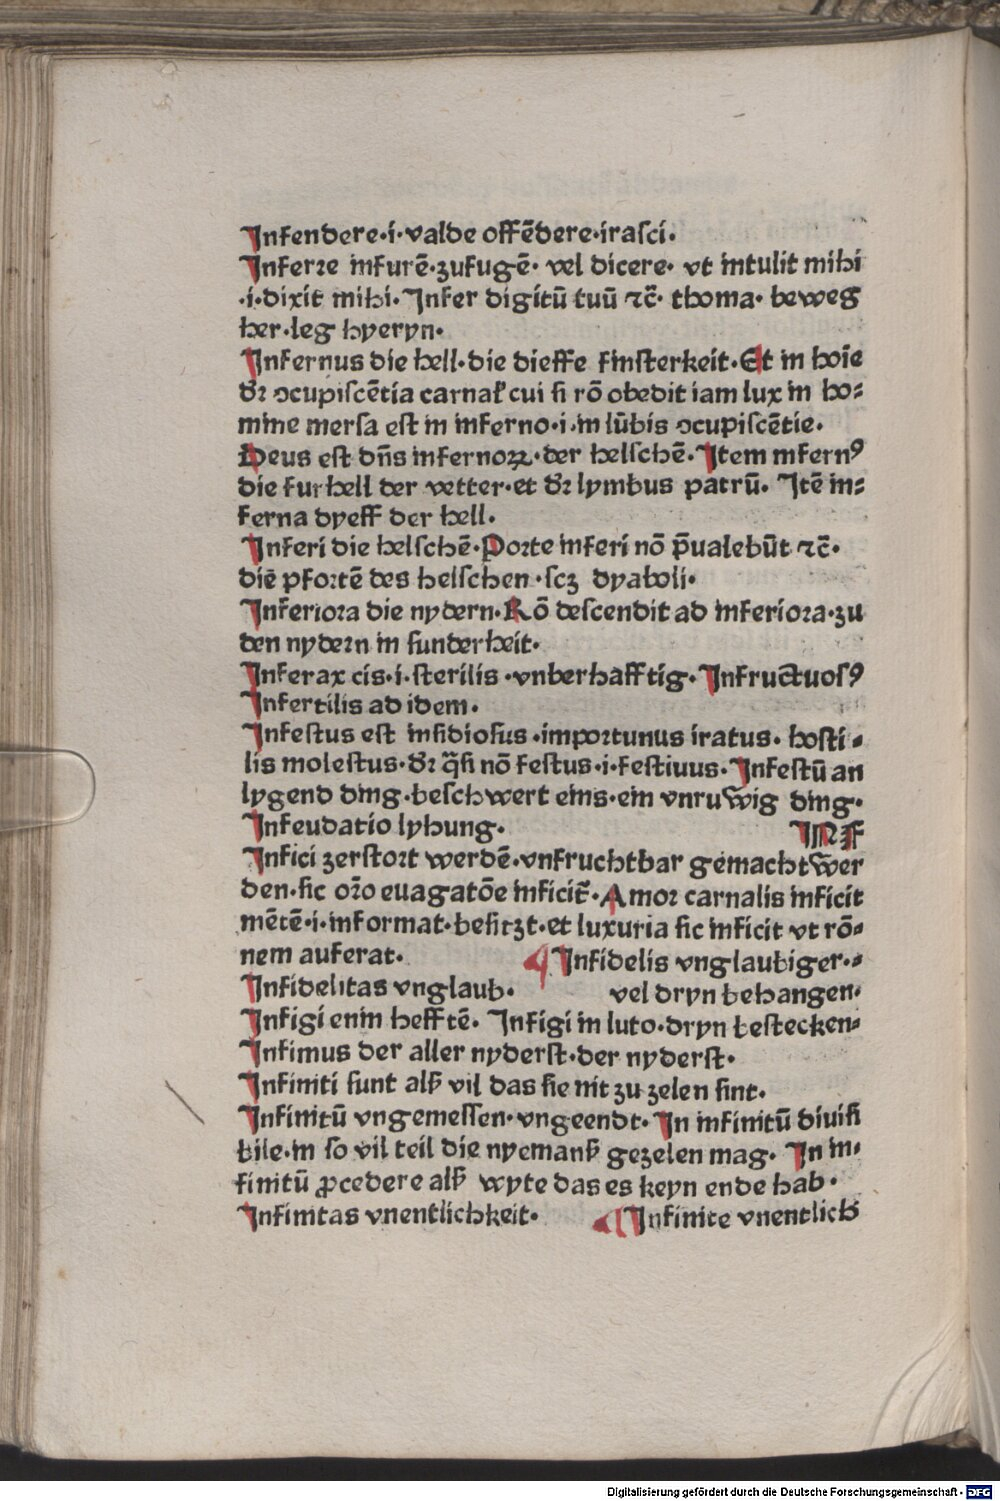 Infendere·i·valde offēdere·irasci·
Inferre infurē·zufugē· vel dicere· vt intulit mihi
·i·dixit mihi· Infer digitū tuū ⁊c̄· thoma· beweg
her·leg hyeryn·
Infernus die hell·die dieffe finsterkeit·Et in hoīe
dr̄ ↄcupiscētia carnal̕ cui si rō obedit iam lux in ho⸗
mine mersa est in inferno·i·in lūbis ↄcupiscētie·
Deus est dn̄s infernoꝝ·der helschē·Item infernꝰ
die furhell der vetter·et dr̄ lymbus patrū· Itē in⸗
ferna dyeff der hell·
Inferi die helschē·Porte inferi nō p̄ualebūt ⁊c̄·
diē pfortē des helschen·scʒ dyaboli·
Inferiora die nydern·Rō descendit ad inferiora·zu
den nydern in sunderheit·
Inferax cis·i·sterilis·vnberhafftig·Infructuosꝰ
Infertilis ad idem·
Infestus est insidiosus·importunus iratus· hosti⸗
lis molestus·dr̄ q̄si nō festus·i·festiuus·Infestū an
lygend ding·beschwert eins·ein vnruwig ding·
Infeudatio lyhung· INF
Infici zerstort werdē·vnfruchtbar gemacht wer
den·sic or̄o euagatōe inficit̄·Amor carnalis inficit
mētē·i·informat·besitzt·et luxuria sic inficit vt rō⸗
nem auferat· ¶ Infidelis vnglaubiger·⸗
Infidelitas vnglaub· vel dryn behangen·
Infigi enin hefftē· Infigi in luto·dryn bestecken⸗
Infimus der aller nyderst·der nyderst·
Infiniti sunt alß vil das sie nit zu zelen sint·
Infinitū vngemessen·vngeendt·In infinitū diuisi
bile·in so vil teil die nyemanß gezelen mag· In in⸗
finitū ꝓcedere alß wyte das es keyn ende hab·
Infinitas vnentlichkeit· ¶ Infinite vnentlich
Digitalisierung gefördert durch die Deutsche Forschungsgemeinschaft - DFG